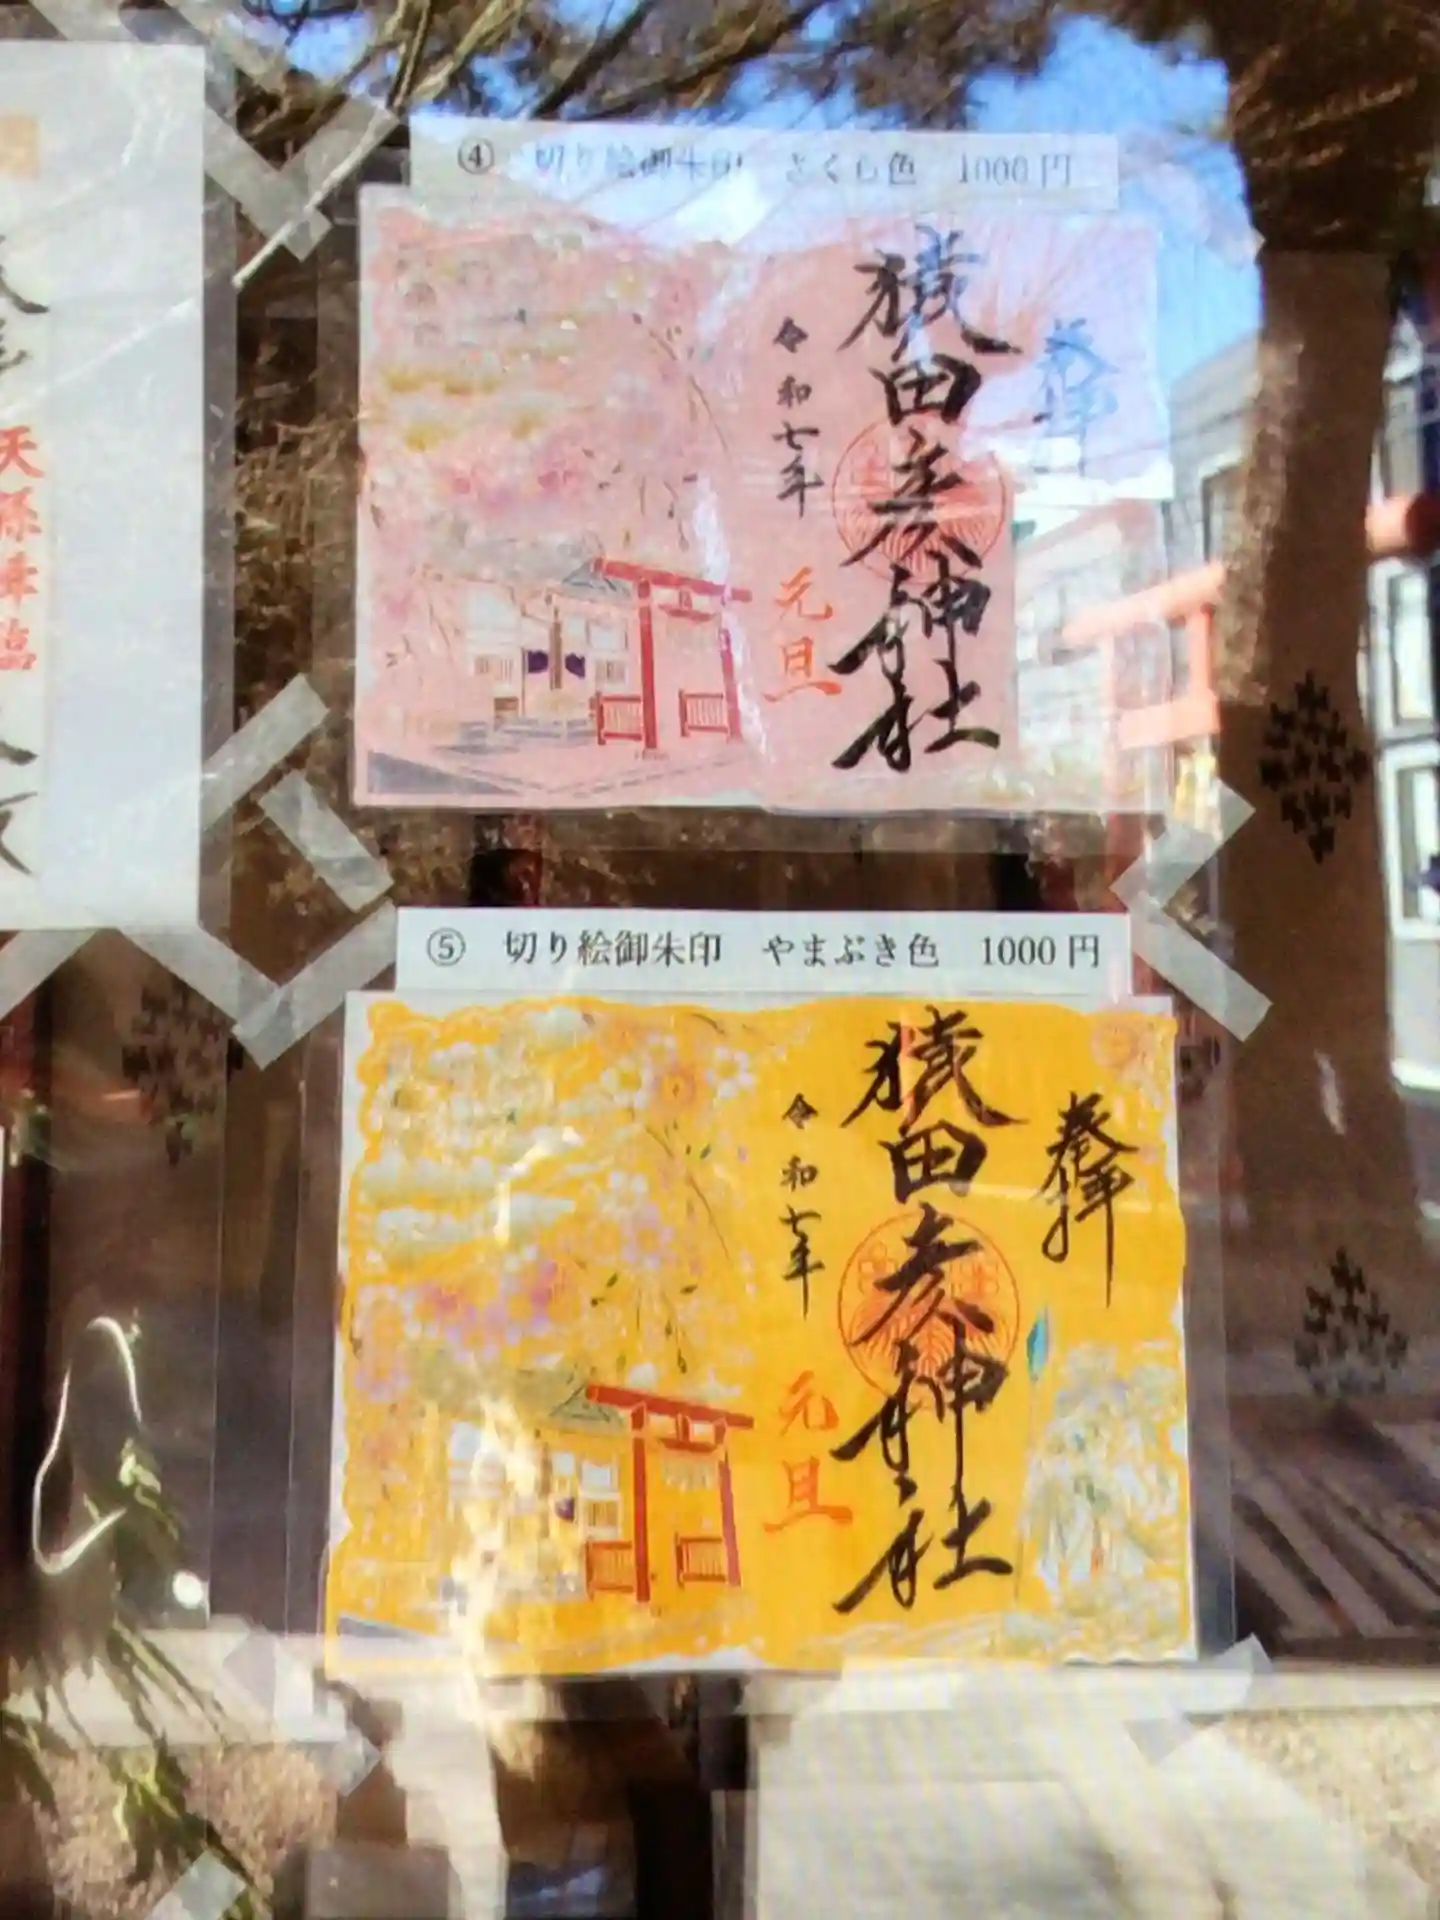 ④ 切り絵御朱印 さくら色 1000円
奉拝
猿田彦神社
令和七年
元旦
⑤ 切り絵御朱印 やまぶき色 1000円
奉拝
猿田彦神社
令和七年
元旦
天孫降臨